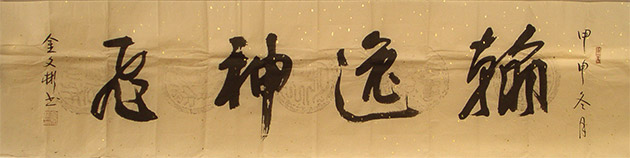 甲申冬月
翰逸神飛
金文彬书